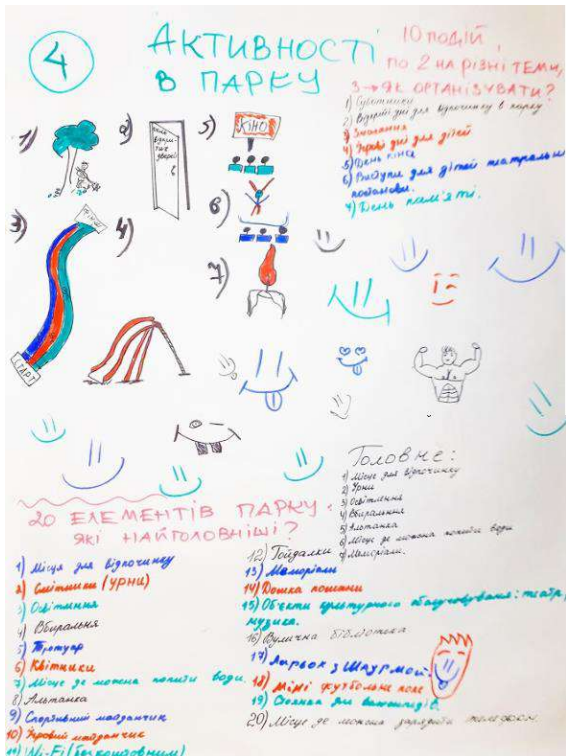 4
АКТИВНОСТІ
В ПАРКУ
10 подій,
по 2 на різні теми,
3 → ЯК ОРГАНІЗУВАТИ?
1) Суботники
2) Відкриті дні для відпочинку в парку
3) Змагання
4) Ігрові дні для дітей
5) День кіно
6) Виступи для дітей театральні
постановки.
7) День пам'яті.
1)
2)
дверей
5)
КІНО
3)
4)
6)
7)
СТАРТ
Головне:
1) Місце для відпочинку
2) Урни
3) Освітлення
4) Вбиральня
5) Альтанка
6) Місце де можна попити води
7) Меморіали.
20 ЕЛЕМЕНТІВ ПАРКУ.
ЯКІ НАЙГОЛОВНІШІ?
1) Місця для відпочинку
2) Смітники (урни)
3) Освітлення
4) Вбиральня
5) Тротуар
6) Квітники
7) Місце де можна попити води.
8) Альтанка
9) Спортивний майданчик
10) Ігровий майданчик
11) Wi-Fi (безкоштовний)
12) Гойдалки
13) Меморіали
14) Дошка пошани
15) Об'єкти культурного: театр,
музика.
16) Вулична бібліотека
17) Ларьок з Шаурмой
18) Міні футбольне поле
19) Стоянка для
20) Місце де можна зарядити телефон.